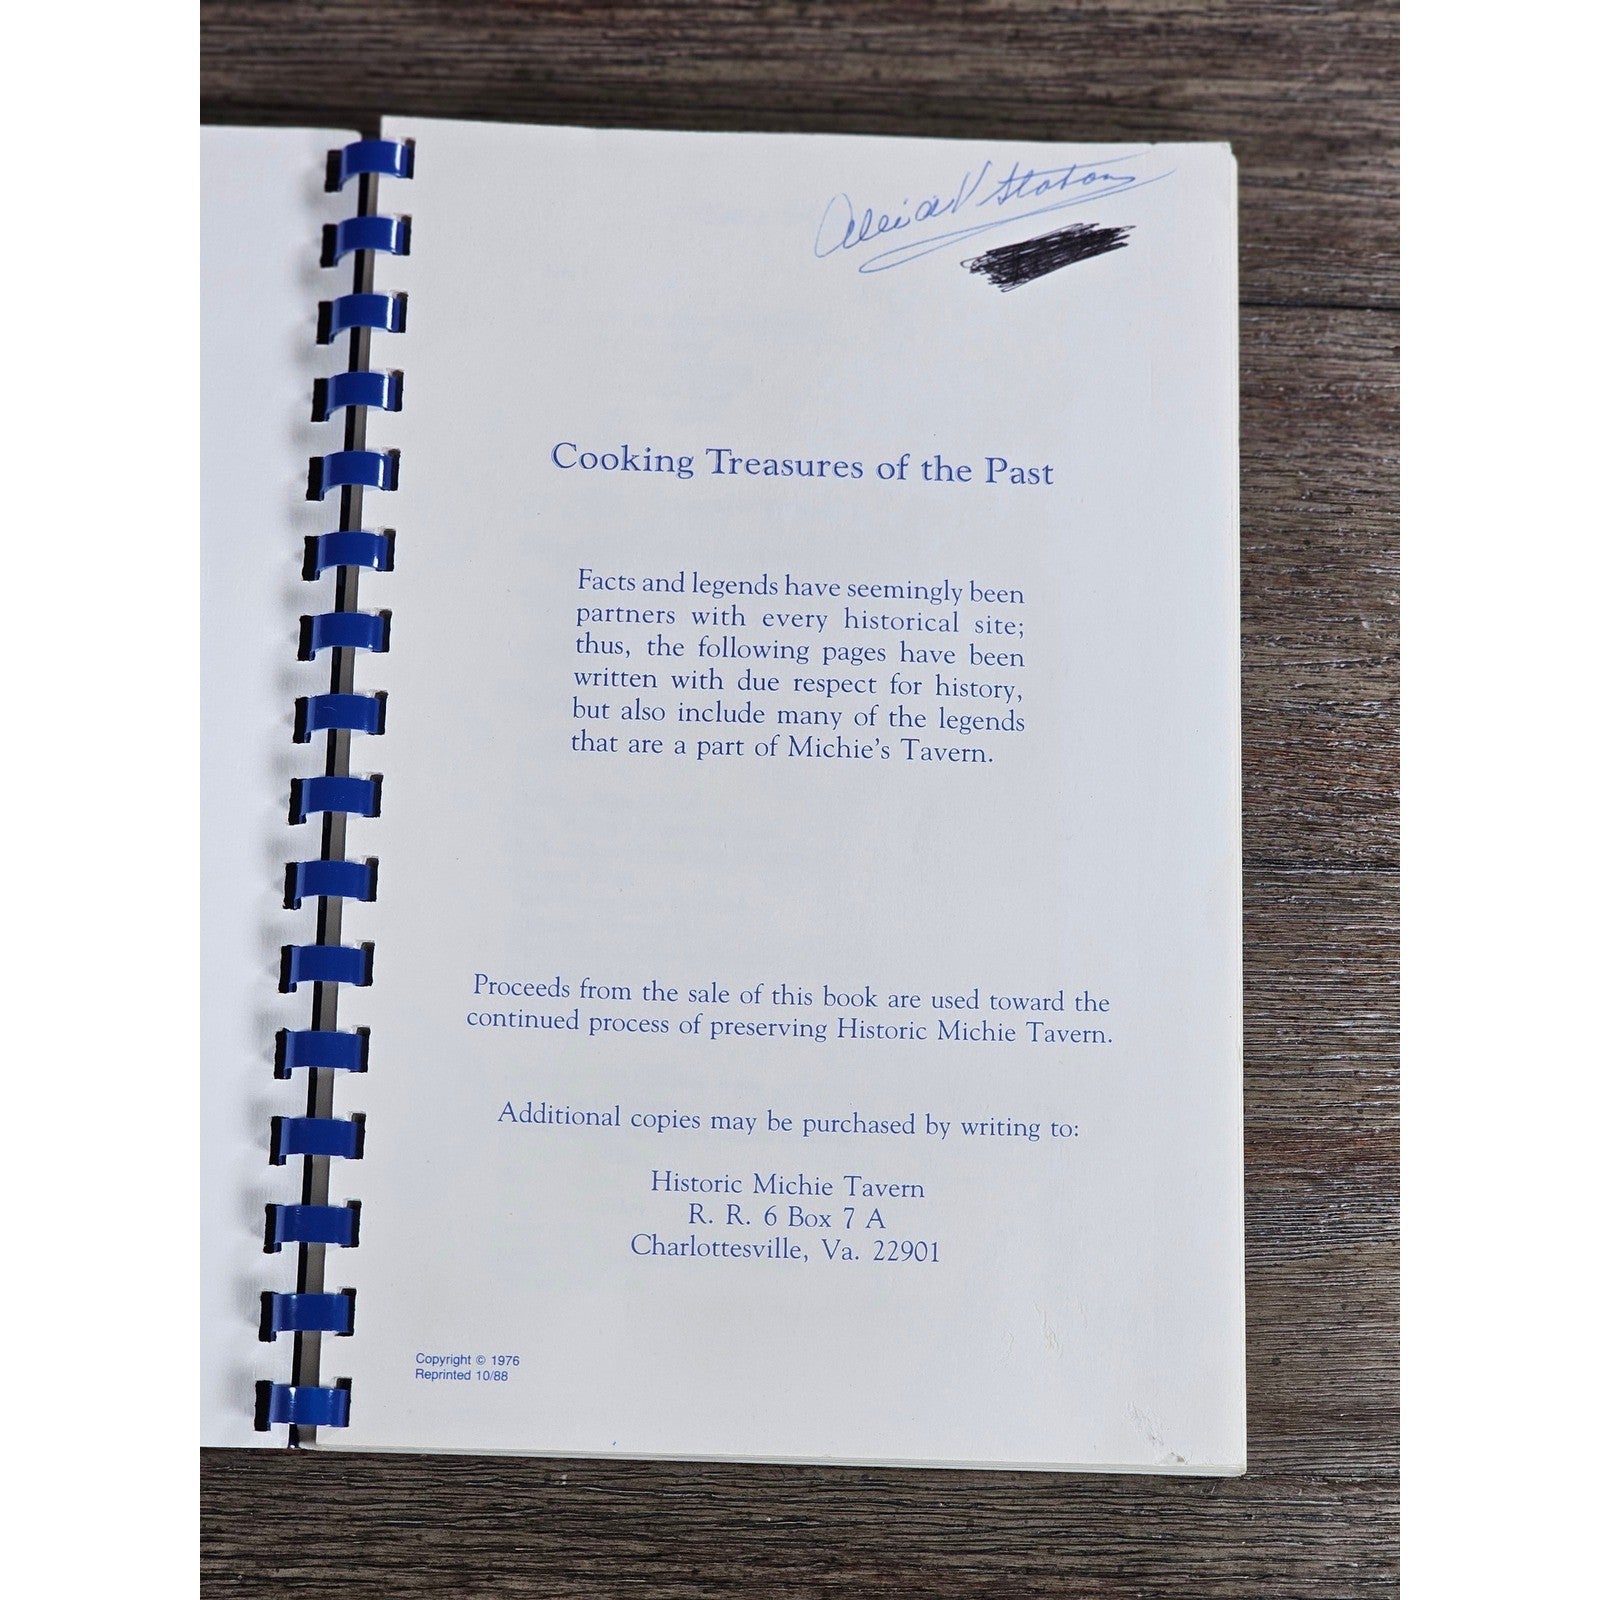 Cooking Treasures of the Past
Facts and legends have seemingly been
partners with every historical site;
thus, the following pages have been
written with due respect for history,
but also include many of the legends
that are a part of Michie's Tavern.
Proceeds from the sale of this book are used toward the
continued process of preserving Historic Michie Tavern.
Additional copies may be purchased by writing to:
Historic Michie Tavern
R. R. 6 Box 7 A
Charlottesville, Va. 22901
Copyright © 1976
Reprinted 10/88